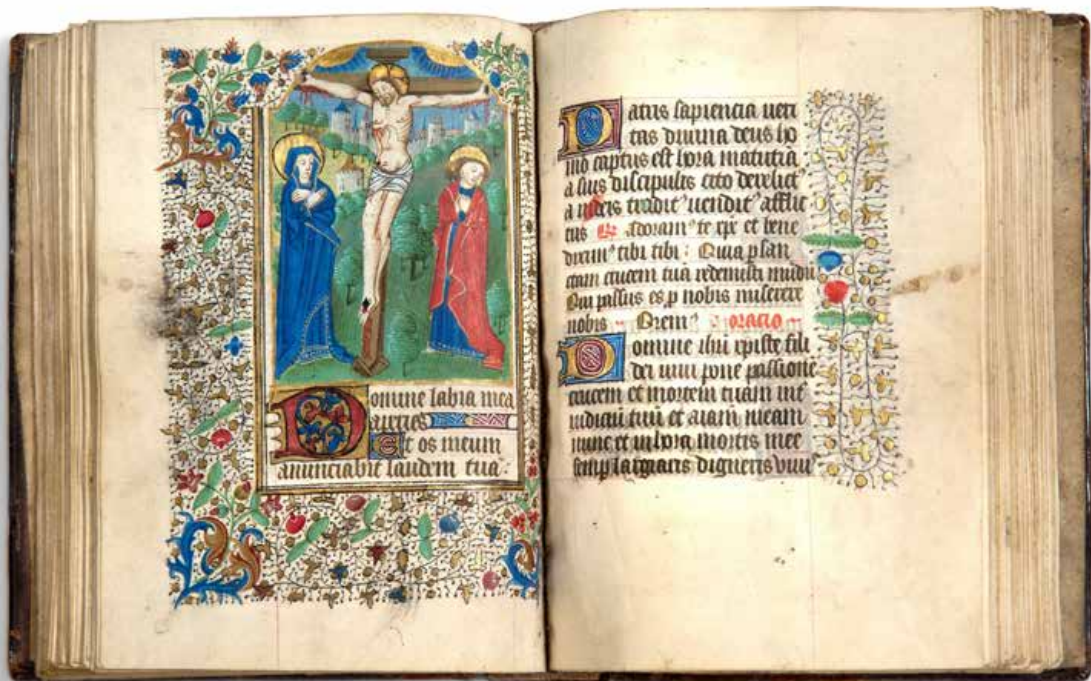 Domine labia mea
aperies
Et os meum
anunciabit laudem tua :
Patris sapiencia veri
tas divina deus ho
mo captus est hora matutia
a suis discipulis cito derelict᾽
a iudeis tradit᾽ vendit᾽ afflic
tus Adoram᾽ te xpe et bene
dicim᾽ tibi tibi : Quia p san
ctam crucem tuā redemisti mūdū
Qui passus es p nobis miserere
nobis Orem᾽ oracio
Domine ihu xpiste fili
dei vivi pone passionē
crucem et mortem tuam int᾽
iudiciū tuū et aīam meam
nunc et in hora mortis mee
semp largiaris digneris vivi᾽